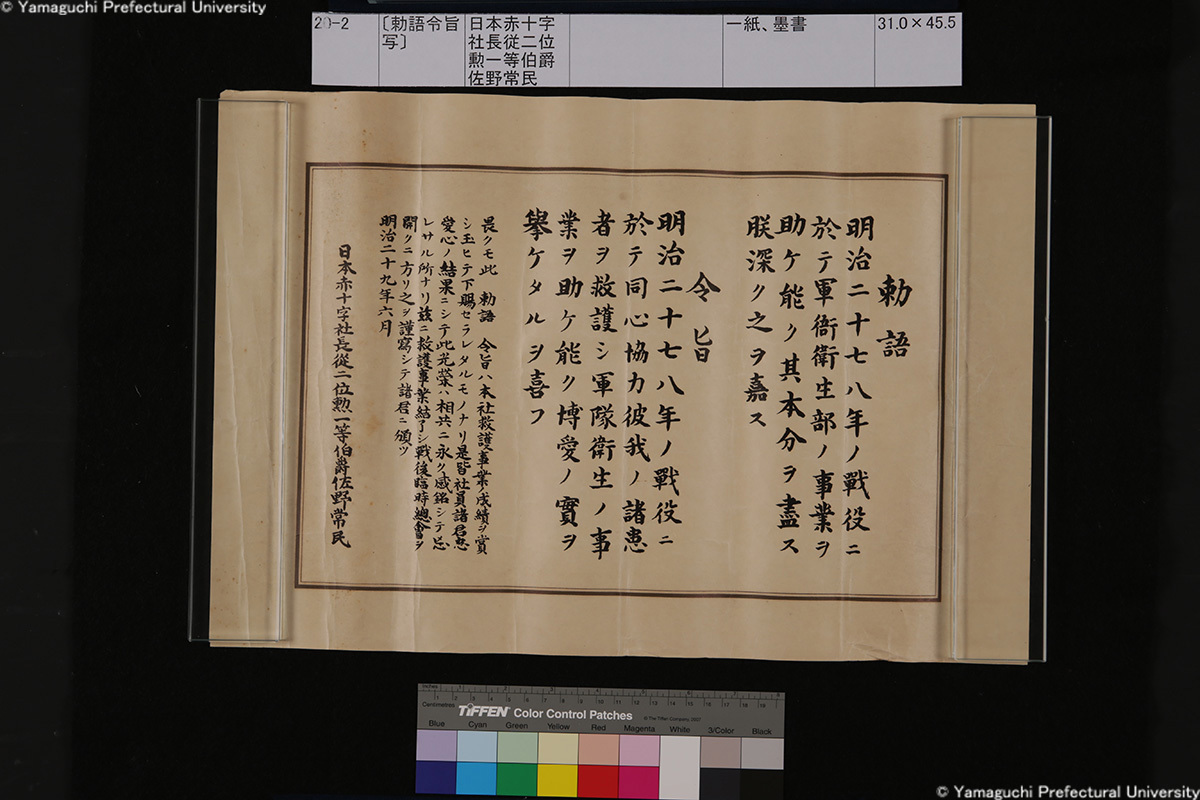 © Yamaguchi Prefectural University
20-2
〔勅語令旨
写〕
日本赤十字
社長従二位
勲一等伯爵
佐野常民
一紙、墨書
31.0×45.5
勅語
明治二十七八年ノ戰役ニ
於テ軍衙衛生部ノ事業ヲ
助ケ能ク其本分ヲ盡ス
朕深ク之ヲ嘉ス
令旨
明治二十七八年ノ戰役ニ
於テ同心協力彼我ノ諸患
者ヲ救護シ軍隊衛生ノ事
業ヲ助ケ能ク博愛ノ實ヲ
擧ケタルヲ喜フ
畏クモ此 勅語 令旨ハ本社救護事業ノ成績ヲ賞
シ玉ヒテ下賜セラレタルモノナリ是皆社員諸君忠
愛心ノ結果ニシテ此光榮ハ相共ニ永ク感銘シテ忘
レサル所ナリ玆ニ救護事業結了シ戰後臨時總會ヲ
開クニ方リ之ヲ謹寫シテ諸君ニ頒ツ
明治二十九年六月
日本赤十字社長從二位勲一等伯爵佐野常民
Inches
Centimetres
TIFFEN Color Control Patches
© The Tiffen Company, 2007
Blue Cyan Green Yellow Red Magenta White 3/Color Black
© Yamaguchi Prefectural University